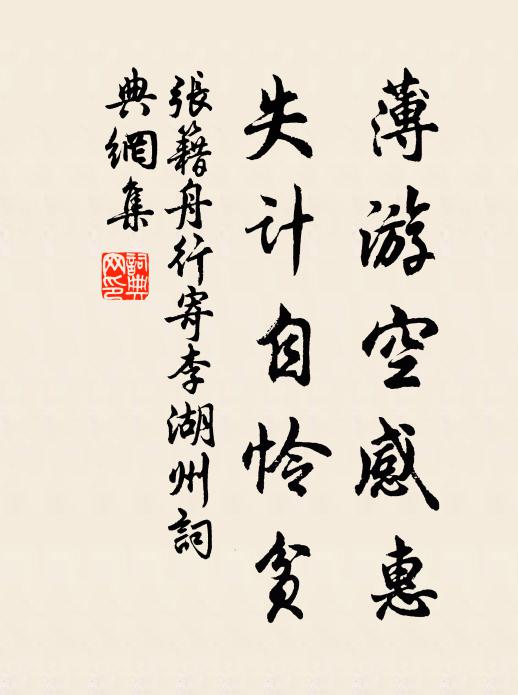 薄游空感惠
失计自怜贫
張籍舟行寄李湖州詞
典網集
詞典
网印